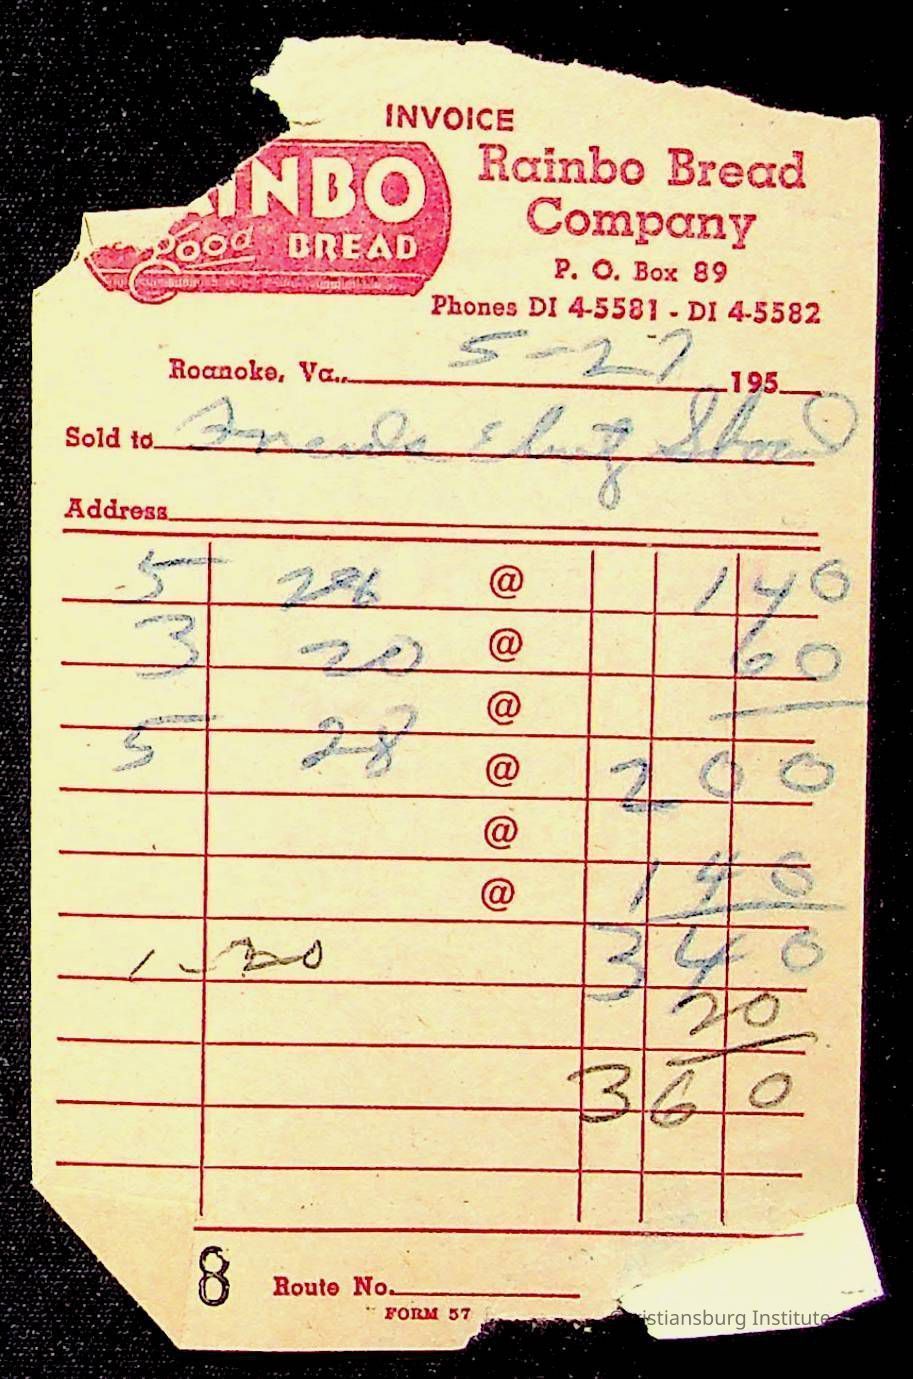 INVOICE
RAINBO
good BREAD
Rainbo Bread
Company
P. O. Box 89
Phones DI 4-5581 - DI 4-5582
Roanoke, Va., 5-27 195
Sold to
Address
5 28 @ 1 40
3 20 @ 60
@
5 28 @ 2 00
@
@ 1 40
1 - 20 3 40
20
3 60
8 Route No.
FORM 57
istiansburg Institute